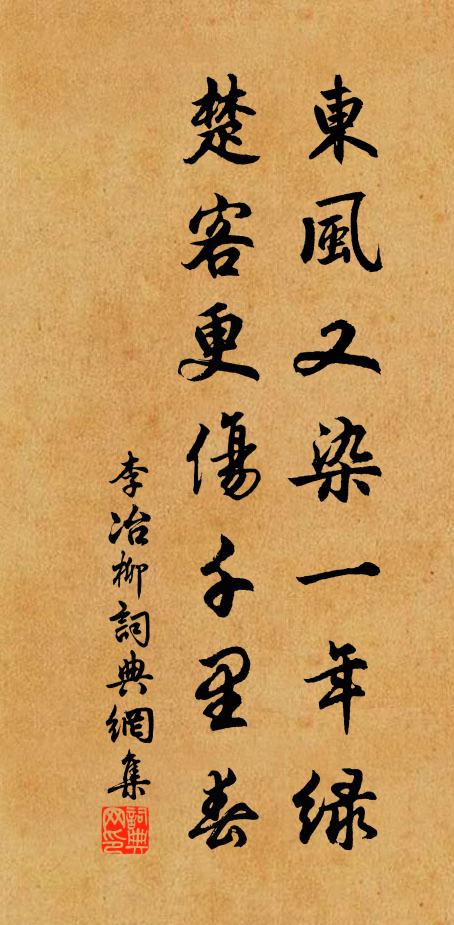 東風又染一年綠
楚客更傷千里春
李冶柳詞典網集
詞典
网印